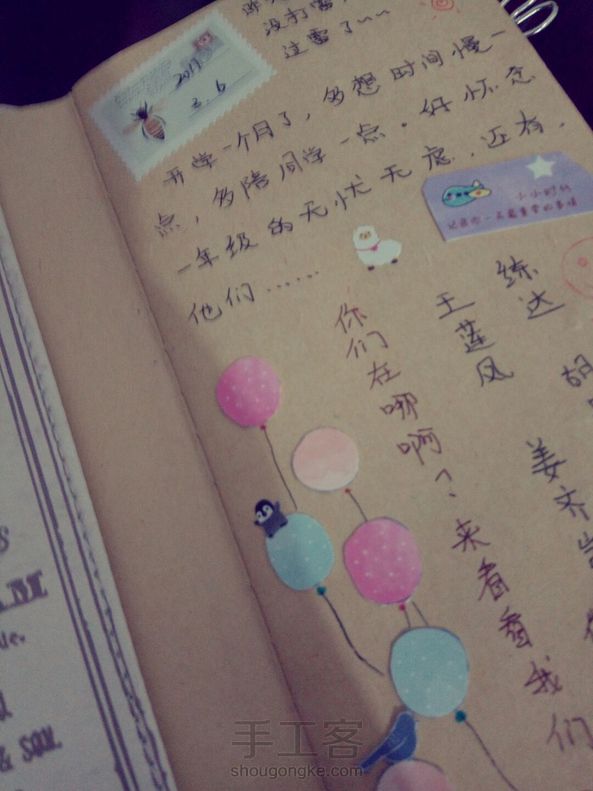 没打雷，
注雷了~~
2017
3.6
开学一个月了，多想时间慢一
点，多陪同学一点。好怀念
一年级的无忧无虑，还有，
他们……
小小时代
记录你一天最重要的事情
你们在哪啊？来看看我们
王莲凤
练达
胡
姜齐
ue.
& SQN.
手工客
shougongke.com